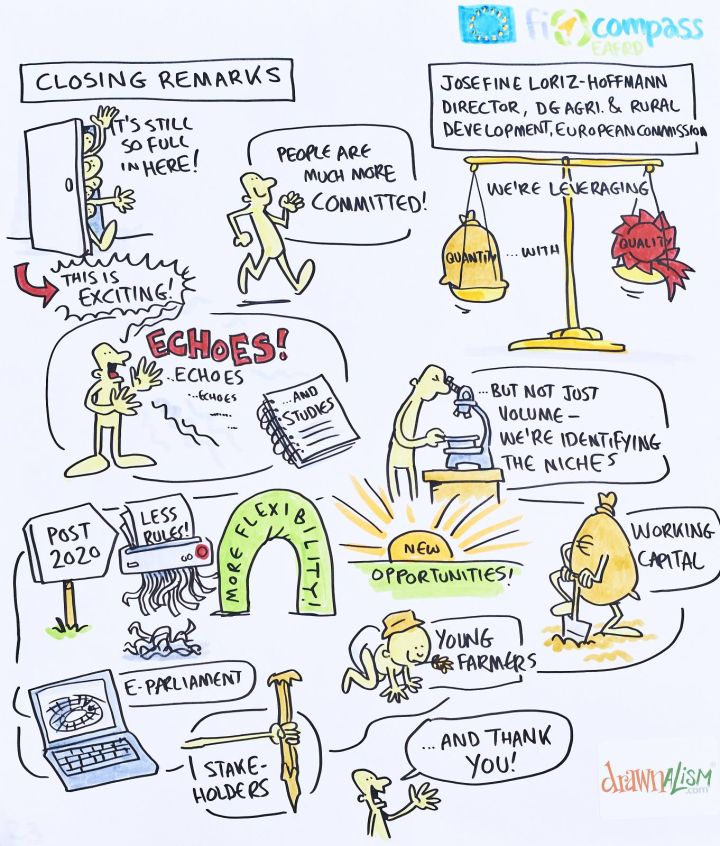 fi compass
EAFRD
CLOSING REMARKS
JOSEFINE LORIZ-HOFFMANN
DIRECTOR, DG AGRI. & RURAL
DEVELOPMENT, EUROPEAN COMMISSION
IT'S STILL
SO FULL
IN HERE!
PEOPLE ARE
MUCH MORE
COMMITTED!
WE'RE LEVERAGING
QUANTITY
...WITH
QUALITY
THIS IS
EXCITING!
ECHOES!
..ECHOES
...ECHOES
...AND
STUDIES
...BUT NOT JUST
VOLUME –
WE'RE IDENTIFYING
THE NICHES
POST
2020
LESS
RULES!
MORE FLEXIBILITY!
NEW
OPPORTUNITIES!
WORKING
CAPITAL
YOUNG
FARMERS
E-PARLIAMENT
STAKE-
HOLDERS
...AND THANK
YOU!
drawnALISM
.com